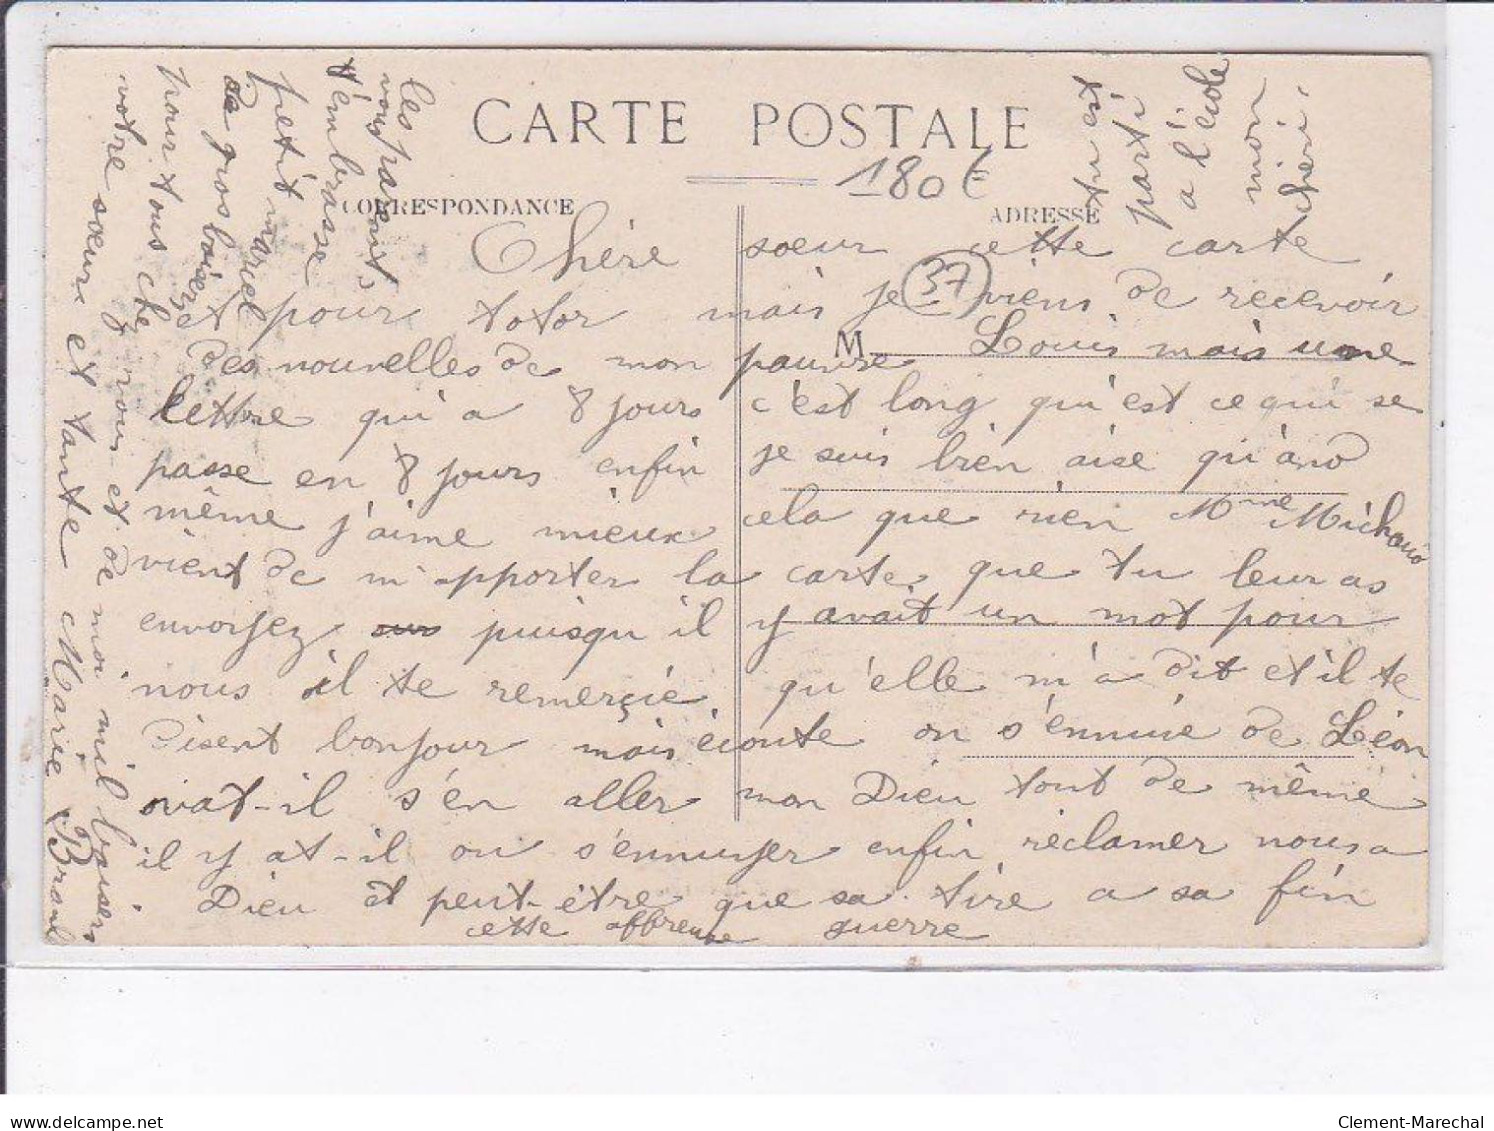 CARTE POSTALE
180€
CORRESPONDANCE
ADRESSE
Chère soeur cette carte
et pour totor mais je viens de recevoir
37
M
des nouvelles de mon pauvre Louis mais une
lettre qui a 8 jours c'est long qu'est ce qui se
passe en 8 jours enfin je suis bien aise qu'and
même j'aime mieux cela que rien Mme Michaud
vient de m'apporter la carte que tu leur as
envoyez puisqu il y avait un mot pour
nous il te remerçie qu'elle m'a dit et il te
disent bonjour mais écoute on s'ennuie de Léon
vat-il s'en aller mon Dieu tout de même
il y at-il on s'ennuyer enfin réclamer nous a
Dieu et peut-être que sa tire a sa fin
cette affreuse guerre
tu est
parti
a l'école
mon
chéri.
les
vous parents
t'embrasse
petit marcel
de gros baisers
pour tous che
y nous et de moi mil baisers
votre soeur et tante Marie Braul
Clement-Marechal